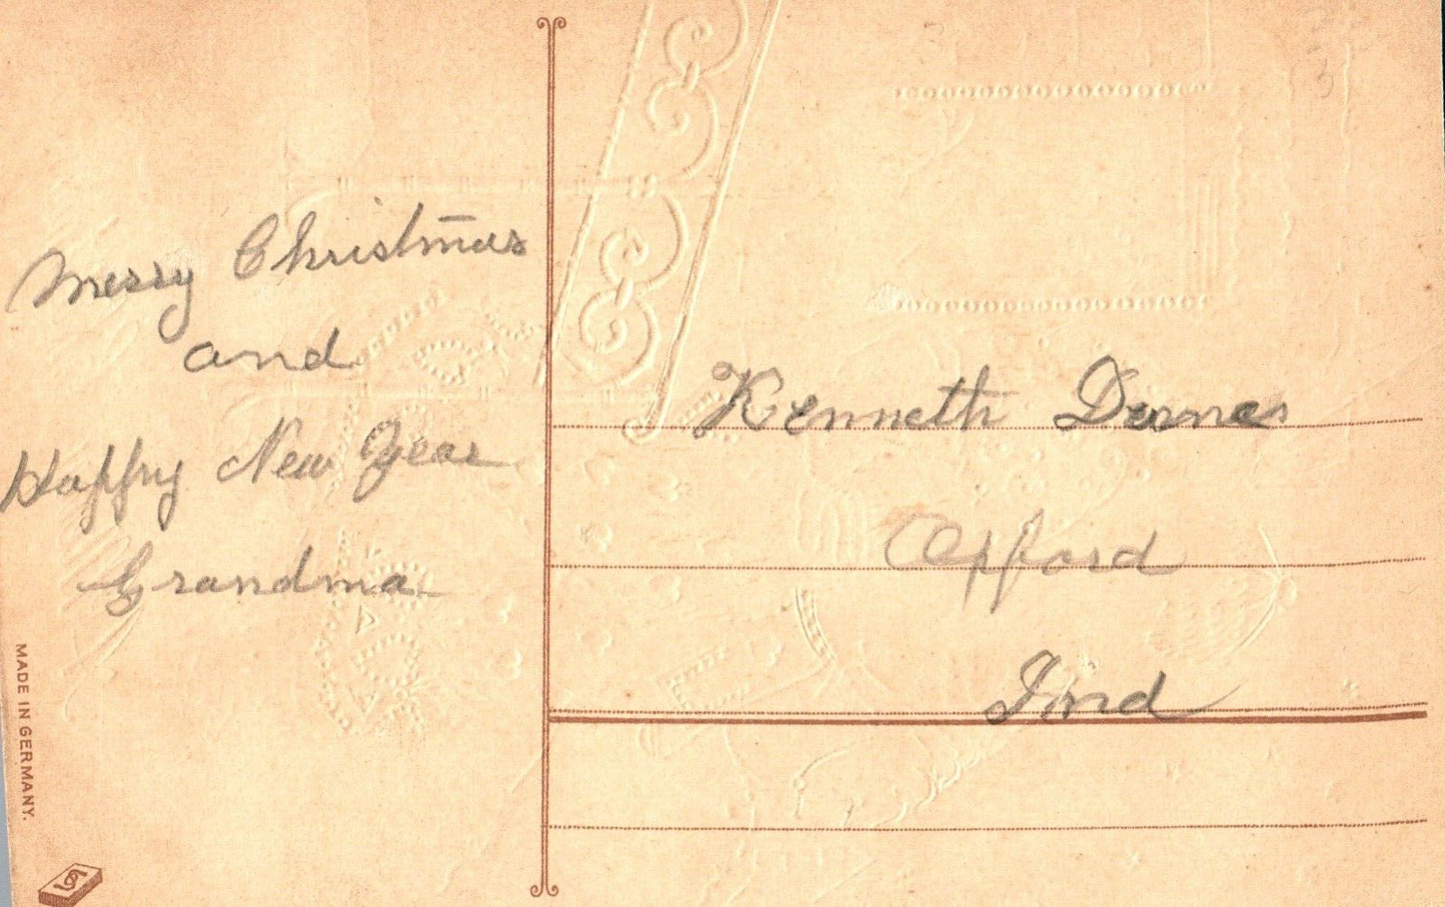 Merry Christmas
and
Happy New Year
Grandma
Kenneth
Oxford
Ind
MADE IN GERMANY.